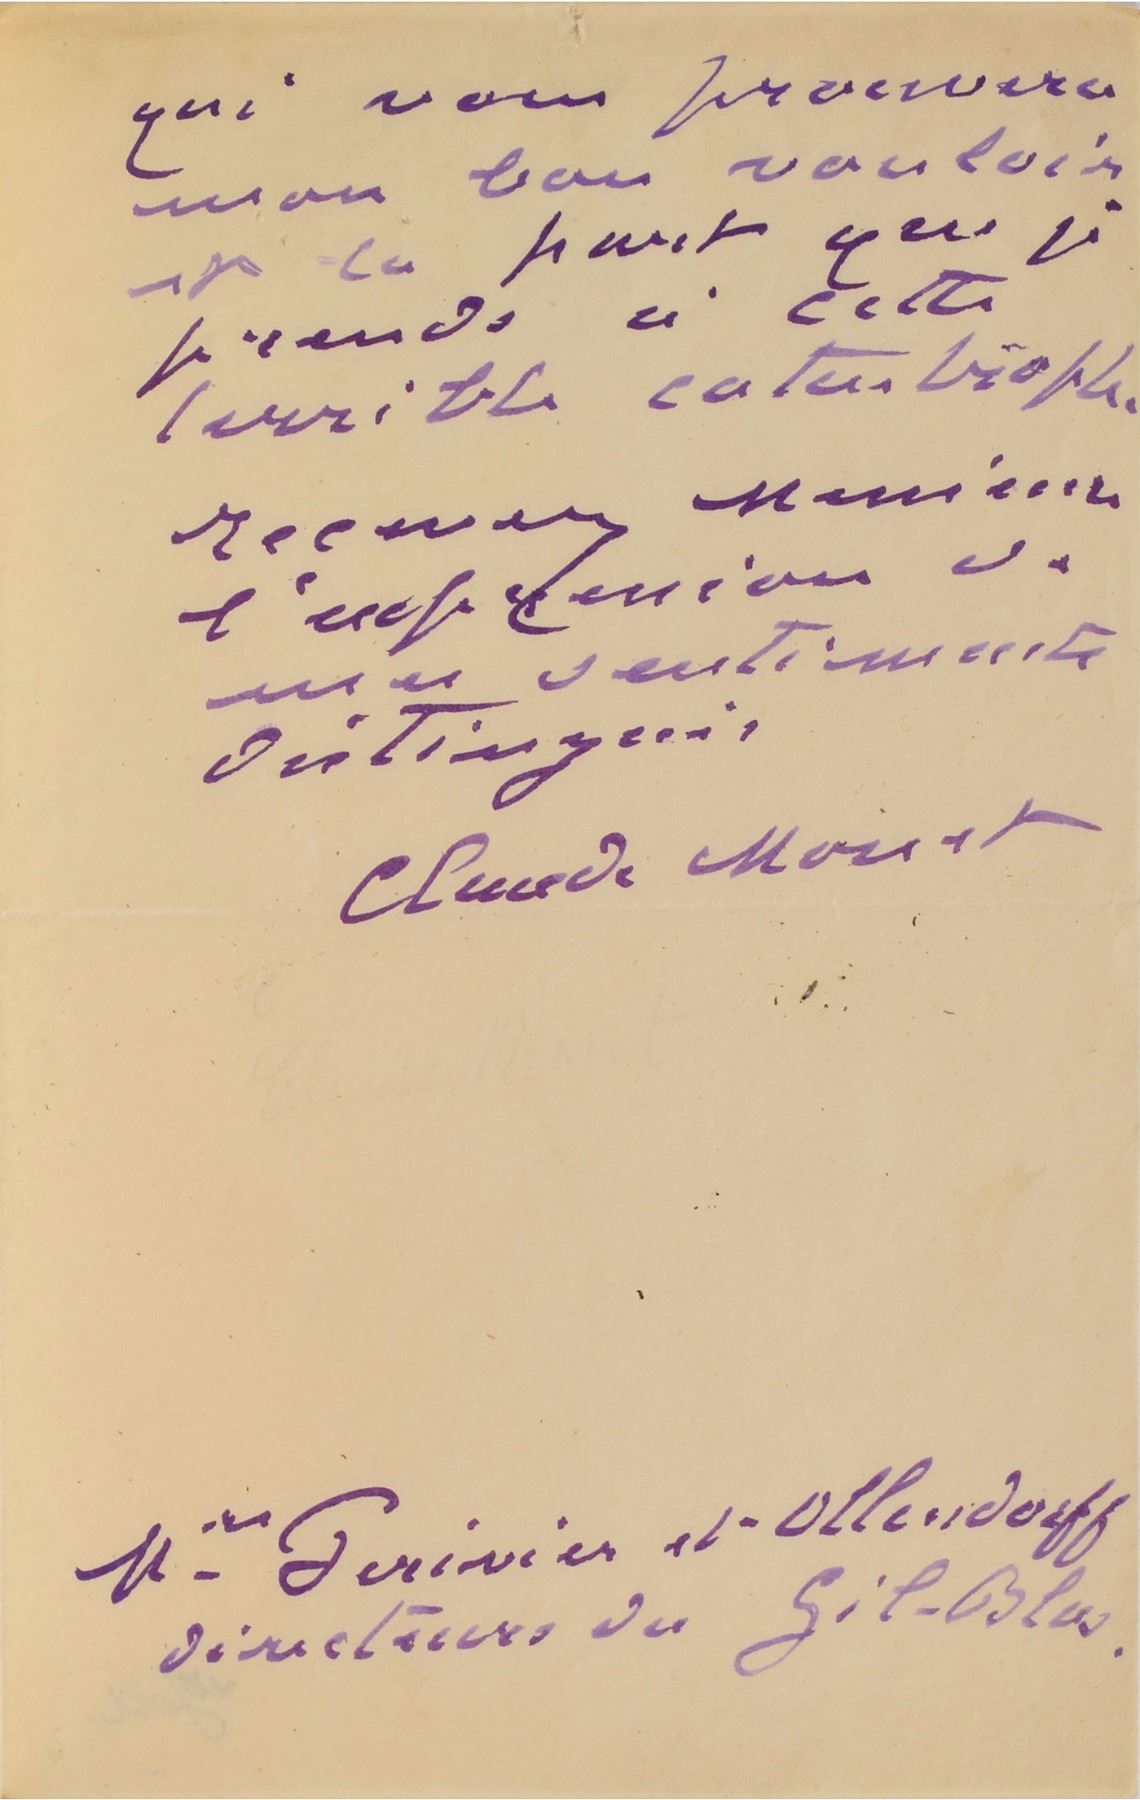 qui vous prouvera
mon bon vouloir
et la part que je
prends à cette
terrible catastrophe.
Recevez Messieurs
l'expression de
mes sentiments
distingués
Claude Monet
Mrs Périvier et Ollendorff
directeurs du Gil-Blas.